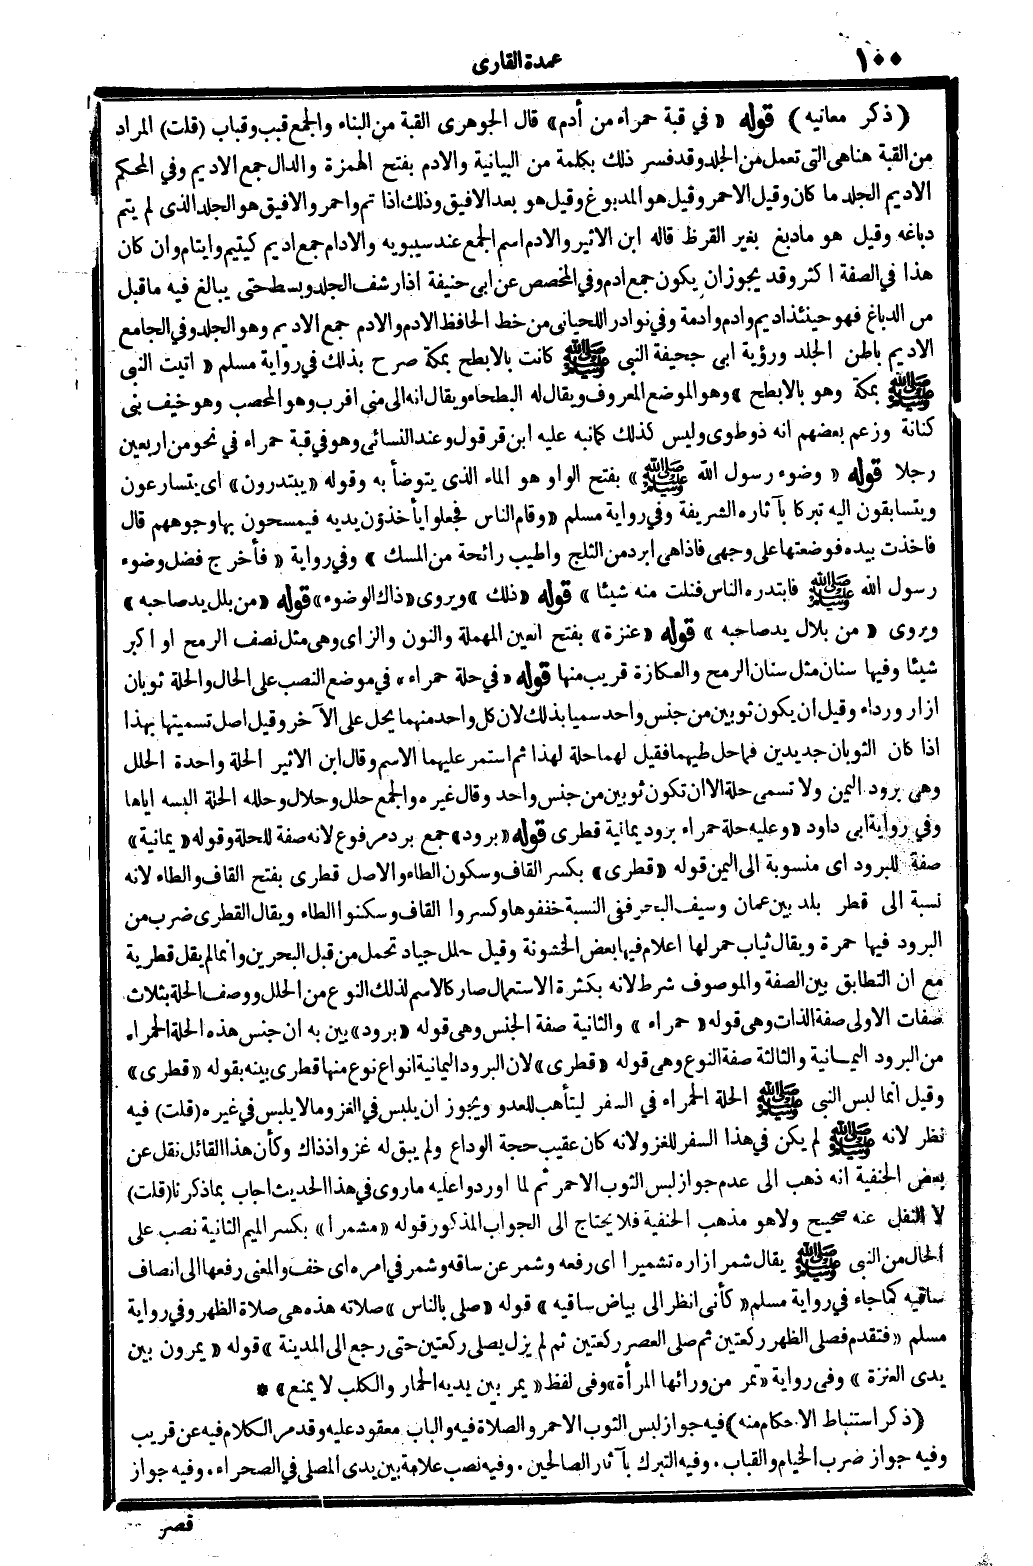 ١٠٠
عمدة القارى
(ذكر معانيه) قوله «في قبة حمراء من أدم» قال الجوهرى القبة من البناء والجمع قبب وقباب (قلت) المراد
من القبة هنا هى التى تعمل من الجلد وقد فسر ذلك بكلمة من البيانية والادم بفتح الهمزة والدال جمع الاديم وفي المحكم
الاديم الجلد ما كان وقيل الاحمر وقيل هو المدبوغ وقيل هو بعد الافيق وذلك اذا تم واحمر والافيق هو الجلد الذى لم يتم
دباغه وقيل هو مادبغ بغير القرظ قاله ابن الاثير والادم اسم الجمع عند سيبويه والادام جمع اديم كيتيم وايتام وان كان
هذا في الصفة اكثر وقد يجوز ان يكون جمع ادم وفي المخصص عن ابى حنيفة اذا رشف الجلد وبسط حتى يبالغ فيه ما قبل
من الدباغ فهو حينئذ اديم وادم وادمة وفي نوادر اللحيانى من خط الحافظ الادم والادم جمع الاديم وهو الجلد وفي الجامع
الاديم باطن الجلد ورؤية ابى جحيفة النبى ﷺ كانت بالابطح بمكة صرح بذلك في رواية مسلم « اتيت النبى
ﷺ بمكة وهو بالابطح » وهو الموضع المعروف ويقال له البطحاء ويقال انه الى منى اقرب وهو المحصب وهو خيف بنى
كنانة وزعم بعضهم انه ذو طوى وليس كذلك كمانبه عليه ابن قرقول وعند النسائى وهو في قبة حمراء في نحو من اربعين
رجلا قوله « وضوء رسول الله ﷺ » بفتح الواو هو الماء الذى يتوضأ به وقوله «يبتدرون» اى يتسارعون
ويتسابقون اليه تبركا بآثاره الشريفة وفي رواية مسلم «وقام الناس فجعلوا يأخذون يديه فيمسحون بها وجوههم قال
فاخذت بيده فوضعتها على وجهى فاذا هى ابرد من الثلج واطيب رائحة من المسك » وفي رواية « فأخرج فضل وضوء
رسول الله ﷺ فابتدره الناس فنلت منه شيئا » قوله «ذلك » ويروى «ذاك الوضوء» قوله «من بلل يد صاحبه»
ويروى « من بلال يد صاحبه » قوله «عنزة» بفتح العين المهملة والنون والزاى وهى مثل نصف الرمح او اكبر
شيئا وفيها سنان مثل سنان الرمح والعكازة قريب منها قوله «في حلة حمراء» في موضع النصب على الحال والحلة ثوبان
ازار ورداء وقيل ان يكون ثوبين من جنس واحد سميا بذلك لان كل واحد منهما يحل على الآخر وقيل اصل تسميتها بهذا
اذا كان الثوبان جديدين فما حل طيهما فقيل لهما حلة لهذا ثم استمر عليهما الاسم وقال ابن الاثير الحلة واحدة الحلل
وهى برود اليمن ولا تسمى حلة الا ان تكون ثوبين من جنس واحد وقال غيره والجمع حلل وحلال وحلله الحلة البسه اياها
وفي رواية ابى داود «وعليه حلة حمراء برود يمانية قطرى قوله «برود» جمع برد مرفوع لانه صفة للحلة وقوله «يمانية»
صفة للبرود اى منسوبة الى اليمن قوله «قطرى» بكسر القاف وسكون الطاء والاصل قطرى بفتح القاف والطاء لانه
نسبة الى قطر بلد بين عمان وسيف البحر ففى النسبة خففوها وكسروا القاف وسكنوا الطاء ويقال القطرى ضرب من
البرود فيها حمرة ويقال ثياب حمر لها اعلام فيها بعض الخشونة وقيل حلل جياد تحمل من قبل البحرين وانما لم يقل قطرية
مع ان التطابق بين الصفة والموصوف شرط لانه بكثرة الاستعمال صار كالاسم لذلك النوع من الحلل ووصف الحلة بثلاث
صفات الاولى صفة الذات وهى قوله « حمراء » والثانية صفة الجنس وهى قوله «برود» بين به ان جنس هذه الحلة الحمراء
من البرود اليمانية والثالثة صفة النوع وهى قوله «قطرى» لان البرود اليمانية انواع نوع منها قطرى بينه بقوله «قطرى»
وقيل انما لبس النبى ﷺ الحلة الحمراء في السفر ليتأهب للعدو ويجوز ان يلبس في الغزو مالا يلبس في غيره (قلت) فيه
نظر لانه ﷺ لم يكن في هذا السفر للغزو لانه كان عقيب حجة الوداع ولم يبق له غزو اذ ذاك وكأن هذا القائل نقل عن
بعض الحنفية انه ذهب الى عدم جواز لبس الثوب الاحمر ثم لما اوردوا عليه ماروى في هذا الحديث اجاب بما ذكرنا (قلت)
لا النقل عنه صحيح ولا هو مذهب الحنفية فلا يحتاج الى الجواب المذكور قوله «مشمرا» بكسر الميم الثانية نصب على
الحال من النبى ﷺ يقال شمر ازاره تشميرا اى رفعه وشمر عن ساقه وشمر في امره اى خف والمعنى رفعها الى انصاف
ساقيه كما جاء في رواية مسلم «كأنى انظر الى بياض ساقيه» قوله «صلى بالناس» صلاته هذه هى صلاة الظهر وفي رواية
مسلم «فتقدم فصلى الظهر ركعتين ثم صلى العصر ركعتين ثم لم يزل يصلى ركعتين حتى رجع الى المدينة» قوله « يمرون بين
يدى العنزة » وفى رواية «تمر من ورائها المرأة» وفى لفظ « يمر بين يديه الحمار والكلب لا يمنع» *
(ذكر استنباط الاحكام منه) فيه جواز لبس الثوب الاحمر والصلاة فيه والباب معقود عليه وقد مر الكلام فيه عن قريب
وفيه جواز ضرب الخيام والقباب . وفيه التبرك بآثار الصالحين . وفيه نصب علامة بين يدى المصلى في الصحراء . وفيه جواز
قصر